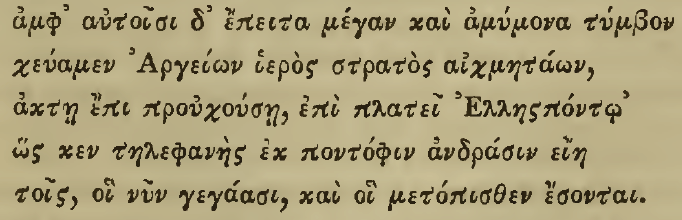 ἀμφ' αὐτοῖσι δ' ἔπειτα μέγαν καὶ ἀμύμονα τύμβον
χεύαμεν Ἀργείων ἱερὸς στρατὸς αἰχμητάων,
ἀκτῃ ἔπι προὐχούσῃ, ἐπὶ πλατεῖ Ἑλλησπόντῳ'
ὥς κεν τηλεφανὴς ἐκ ποντόφιν ἀνδράσιν εἴη
τοῖς, οἳ νῦν γεγάασι, καὶ οἳ μετόπισθεν ἔσονται.